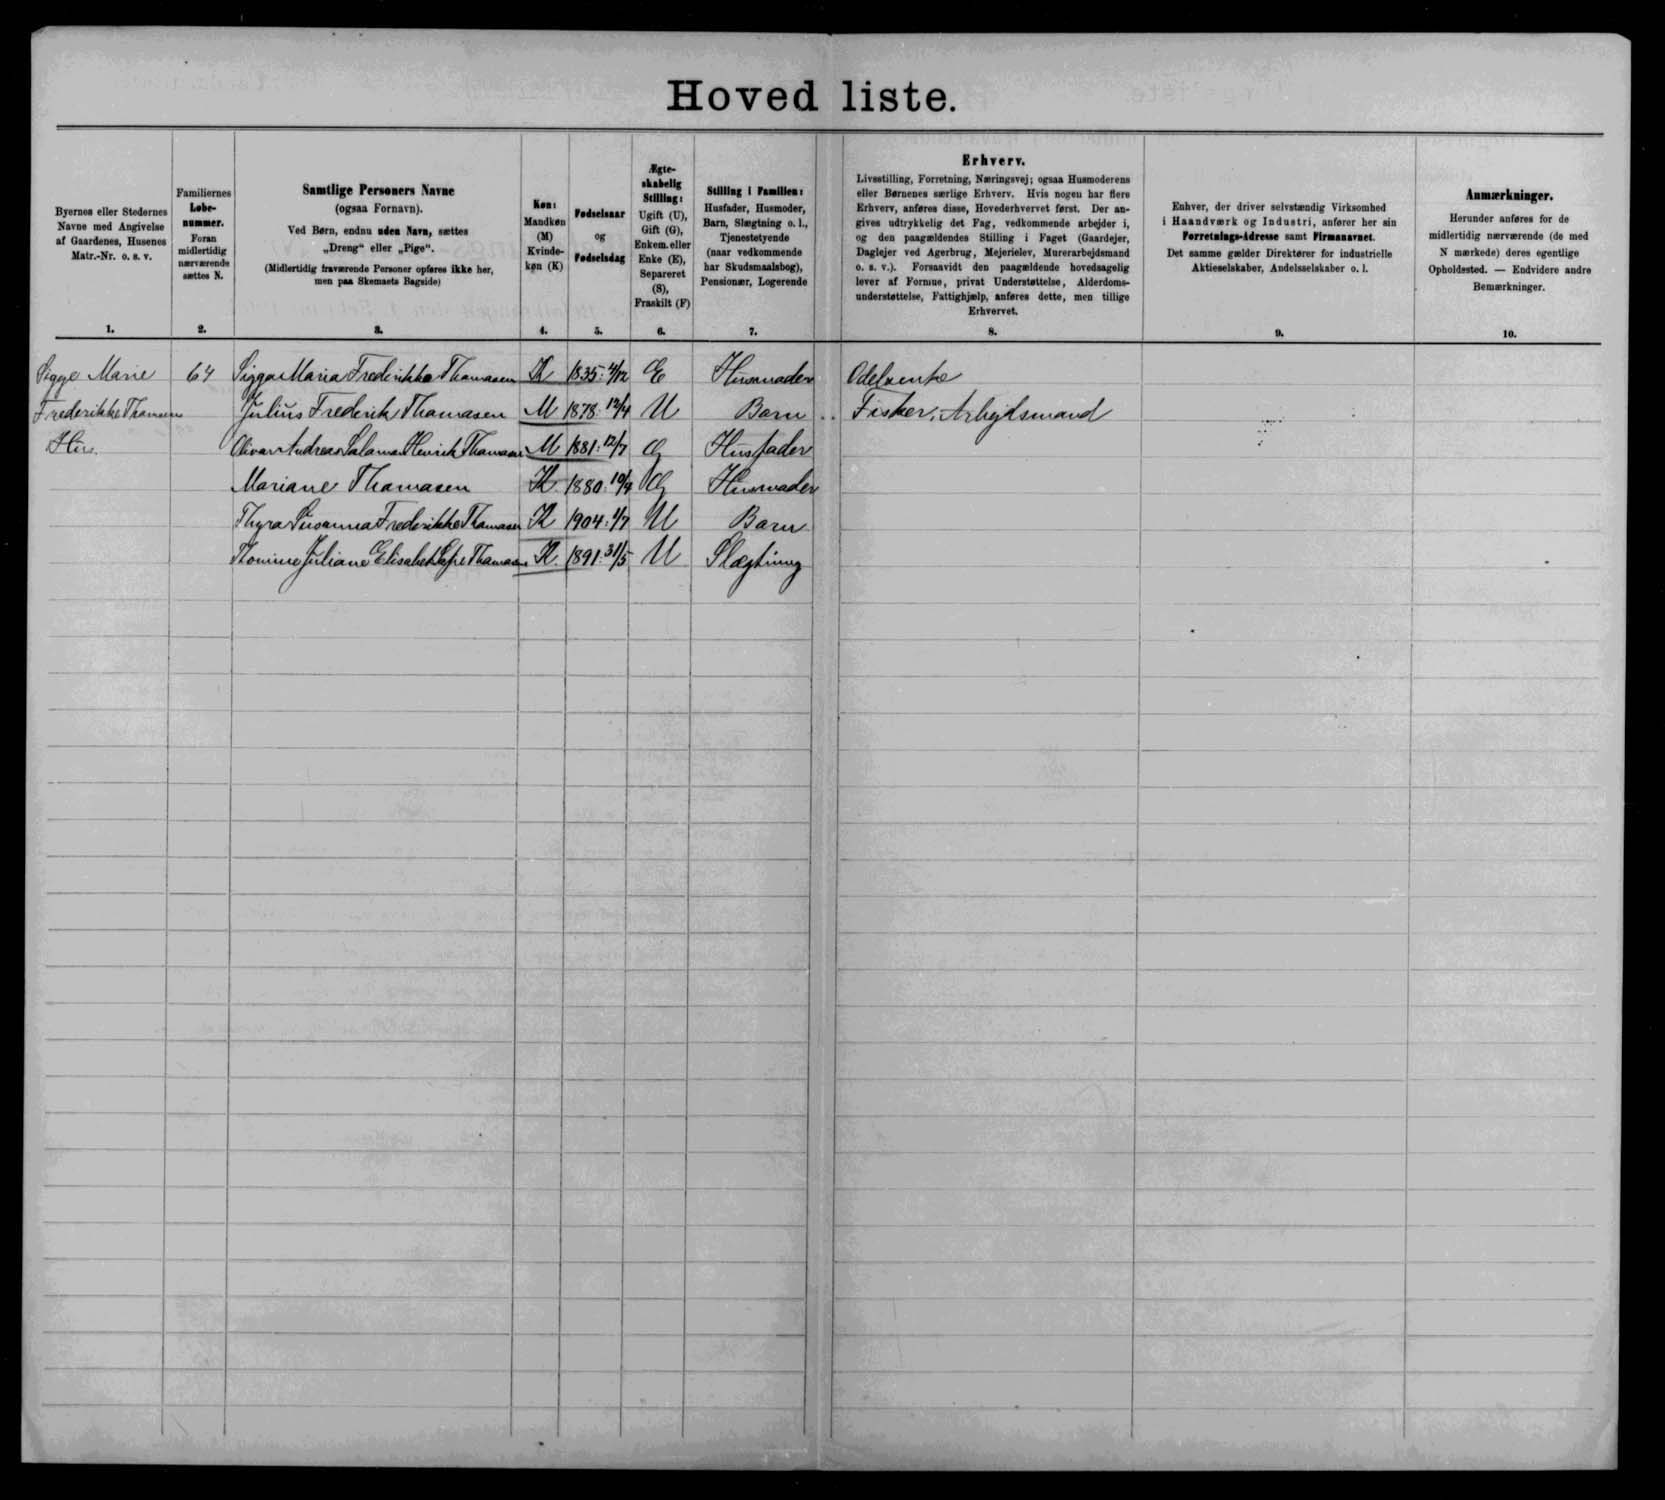 Hoved liste.
Byernes eller Stedernes
Navne med Angivelse
af Gaardenes, Husenes
Matr.-Nr. o. s. v.
1.
Familiernes
Løbe-
nummer.
Foran
midlertidig
nærværende
sættes N.
2.
Samtlige Personers Navne
(ogsaa Fornavn).
Ved Børn, endnu uden Navn, sættes
„Dreng“ eller „Pige“.
(Midlertidig fraværende Personer opføres ikke her,
men paa Skemaets Bagside)
3.
Køn:
Mandkøn
(M)
Kvinde-
køn (K)
4.
Fødselsaar
og
Fødselsdag
5.
Ægte-
skabelig
Stilling:
Ugift (U),
Gift (G),
Enkem. eller
Enke (E),
Separeret
(S),
Fraskilt (F)
6.
Stilling i Familien:
Husfader, Husmoder,
Barn, Slægtning o. l.,
Tjenestetyende
(naar vedkommende
har Skudsmaalsbog),
Pensionær, Logerende
7.
Erhverv.
Livsstilling, Forretning, Næringsvej; ogsaa Husmoderens
eller Børnenes særlige Erhverv. Hvis nogen har flere
Erhverv, anføres disse, Hovederhvervet først. Der an-
gives udtrykkelig det Fag, vedkommende arbejder i,
og den paagældendes Stilling i Faget (Gaardejer,
Daglejer ved Agerbrug, Mejerielev, Murerarbejdsmand
o. s. v.). Forsaavidt den paagældende hovedsagelig
lever af Formue, privat Understøttelse, Alderdoms-
understøttelse, Fattighjælp, anføres dette, men tillige
Erhvervet.
8.
Enhver, der driver selvstændig Virksomhed
i Haandværk og Industri, anfører her sin
Forretnings-Adresse samt Firmanavnet.
Det samme gælder Direktører for industrielle
Aktieselskaber, Andelsselskaber o. l.
9.
Anmærkninger.
Herunder anføres for de
midlertidig nærværende (de med
N mærkede) deres egentlige
Opholdested. — Endvidere andre
Bemærkninger.
10.
Sigge Marie 64 Sigga Maria Frederikka Thomasen K 1835: 4/12 E Husmoder Odelsenke
Frederikke Thomsens Julius Frederik Thomasen M 1878: 12/4 U Barn Fisker, Arbejdsmand
Hus. Olivar Andreas Salamon Henrik Thomasen M 1881: 12/7 G Husfader
Mariane Thomasen K 1880: 10/4 G Husmoder
Thyra Susanna Frederikke Thomasen K 1904: 1/7 U Barn
Juliane Elisabet Thomasen K. 1891: 31/5 U Slægtning